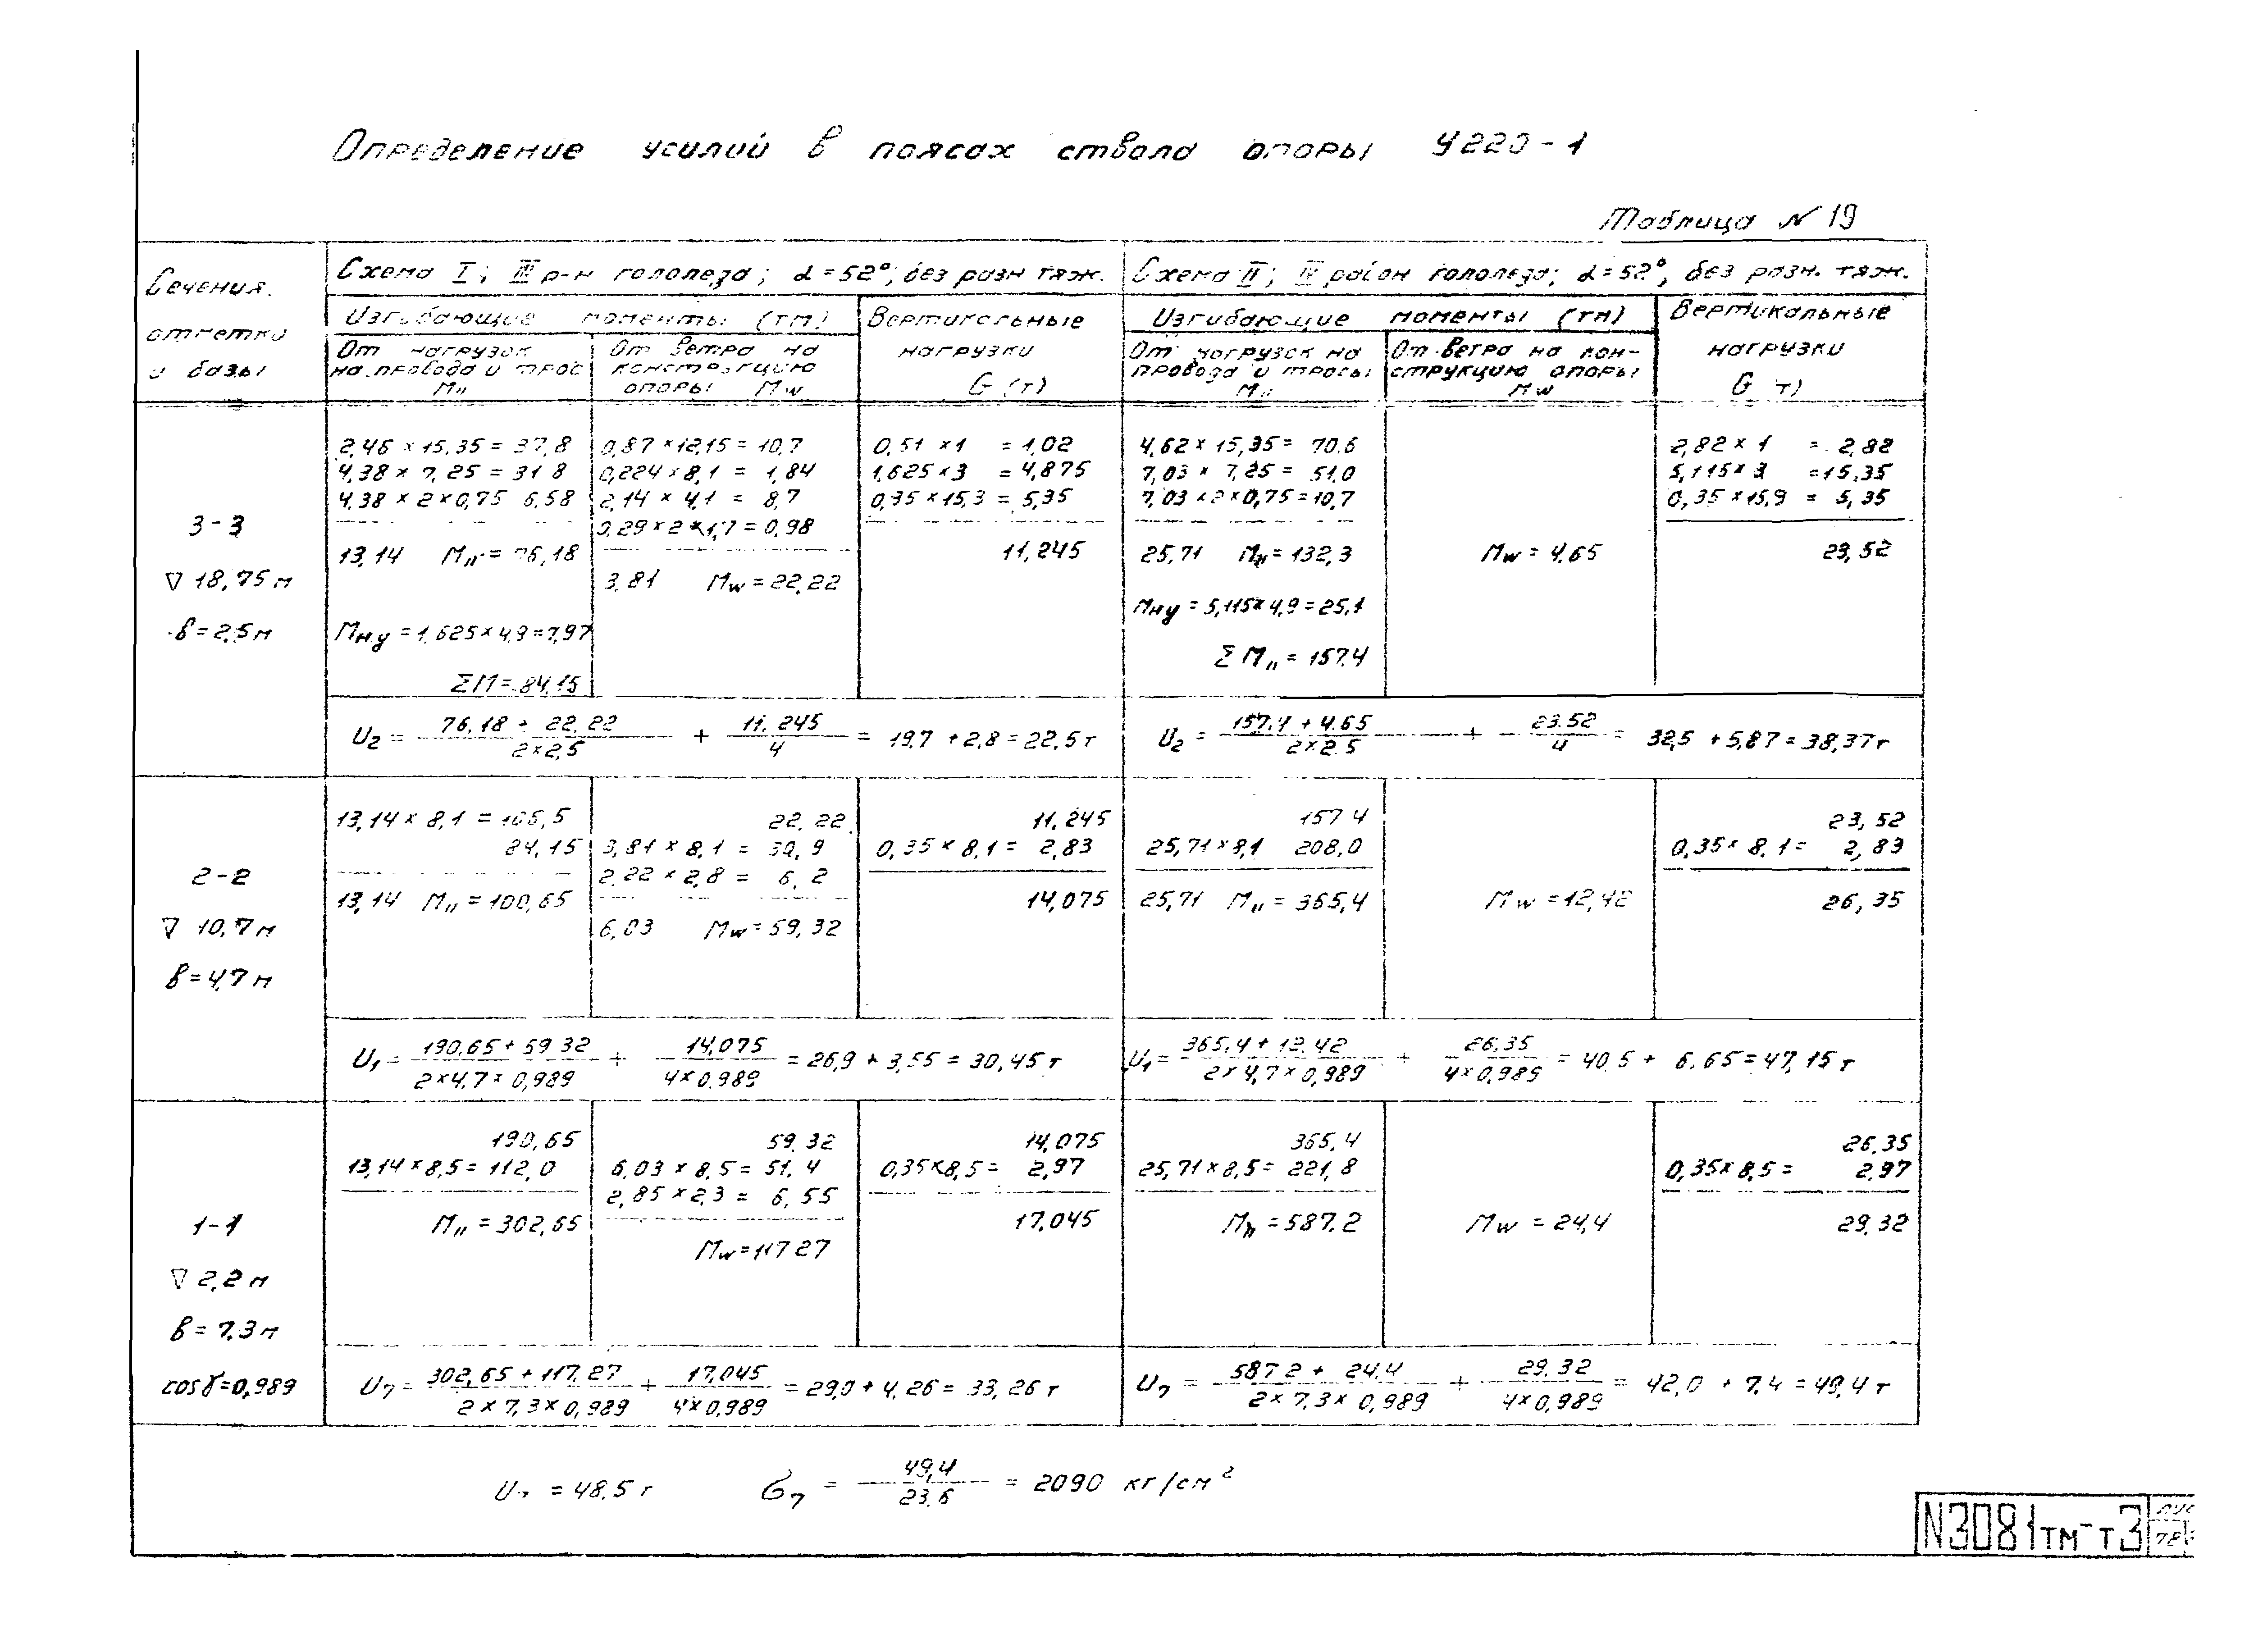 Определение усилий в поясах ствола опоры У220-1
Таблица N 19
Сечения.
отметки
и базы
Схема I; III р-н гололеда; α=52°; без разн тяж.
Изгибающие моменты (тм)
От нагрузок
на провода и трос
Мп
От ветра на
конструкцию
опоры Мw
Вертикальные
нагрузки
G (т)
Схема II; IV район гололеда; α=52°, без разн. тяж.
Изгибающие моменты (тм)
От нагрузок на
провода и тросы
Мп
От ветра на кон-
струкцию опоры
Мw
Вертикальные
нагрузки
G т)
3-3
▽ 18,75 м
в=2,5м
2,46 × 15,35 = 37,8
4,38 × 7,25 = 31 8
4,38 × 2 × 0,75 6,58
13,14 Мп = 76,18
Мну = 1,625×4,9=7,97
ΣМ= 84,15
0,87 × 12,15 = 10,7
0,224 × 8,1 = 1,84
2,14 × 4,1 = 8,7
0,29 × 2 × 1,7 = 0,98
3,81 Мw = 22,22
0,51 ×1 = 1,02
1,625×3 = 4,875
0,35 × 15,3 = 5,35
11,245
4,62 × 15,35= 70,6
7,03 × 7,25 = 51,0
7,03 × 2 × 0,75 = 10,7
25,71 Мп = 132,3
Мну = 5,115× 4,9 = 25,1
Σ Мп = 157,4
Мw = 4,65
2,82 × 1 = 2,82
5,115× 3 =15,35
0,35 × 15,9 = 5,35
23,52
U₂ = (76,18 + 22,22)/(2×2,5) + 11,245/4 = 19,7 + 2,8 = 22,5 т
U₂ = (157,4 + 4,65)/(2×2,5) + 23,52/4 = 32,5 + 5,87 = 38,37т
2-2
▽ 10,7м
в=4,7м
13,14 × 8,1 = 106,5
84,15
13,14 Мп = 100,65
22,22
3,81 × 8,1 = 30,9
2,22 × 2,8 = 6,2
6,03 Мw = 59,32
11,245
0,35 × 8,1 = 2,83
14,075
157 4
25,71 × 8,1 208,0
25,71 Мп = 365,4
Мw = 12,42
23,52
0,35× 8,1 = 2,83
26,35
U₁ = (190,65 + 59 32)/(2×4,7×0,989) + 14,075/(4×0,989) = 26,9 + 3,55 = 30,45 т
U₁ = (365,4 + 12,42)/(2×4,7×0,989) + 26,35/(4×0,989) = 40,5 + 6,65 = 47,15 т
1-1
▽ 2,2 м
в= 7,3м
cosγ=0,989
190,65
13,14×8,5= 112,0
Мп = 302,65
59,32
6,03 × 8,5 = 51,4
2,85 × 2,3 = 6,55
Мw=117 27
14,075
0,35×8,5= 2,97
17,045
365,4
25,71×8,5= 221,8
Мп = 587,2
Мw = 24,4
26,35
0,35×8,5 = 2,97
29,32
U₇ = (302,65 + 117,27)/(2×7,3×0,989) + 17,045/(4×0,989) = 29,0 + 4,26 = 33,26 т
U₇ = (587 2 + 24,4)/(2×7,3×0,989) + 29,32/(4×0,989) = 42,0 + 7,4 = 49,4 т
= 48,5 т σ₇ = 49,4/23,6 = 2090 кг/см²
N3081тм-т3
78